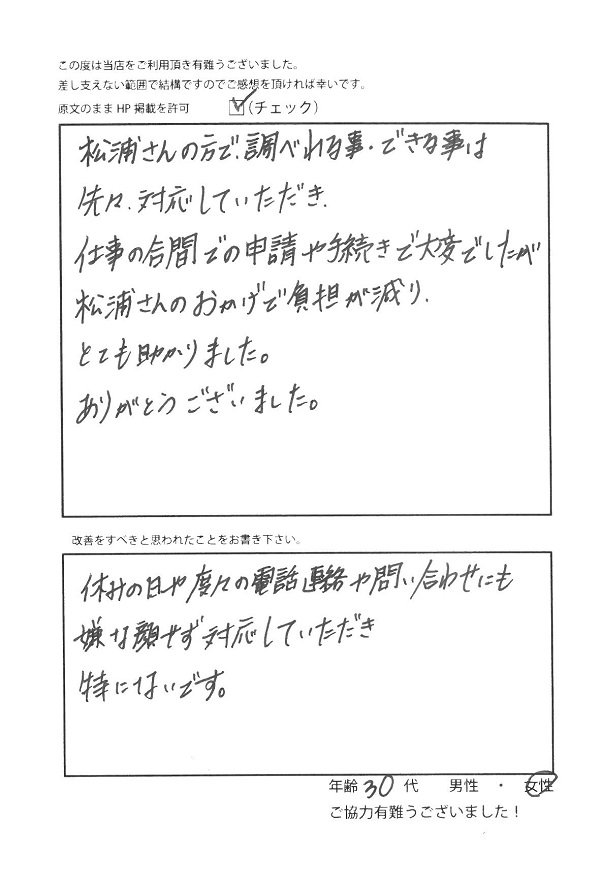 この度は当店をご利用頂き有難うございました。
差し支えない範囲で結構ですのでご感想を頂ければ幸いです。
原文のままHP掲載を許可 ☑(チェック)
松浦さんの方で、調べれる事・できる事は
先々、対応していただき、
仕事の合間での申請や手続きで大変でしたが
松浦さんのおかげで負担が減り、
とても助かりました。
ありがとうございました。
改善をすべきと思われたことをお書き下さい。
休みの日や度々の電話連絡や問い合わせにも
嫌な顔せず対応していただき
特にないです。
年齢 30 代 男性 ・ 女性
ご協力有難うございました！